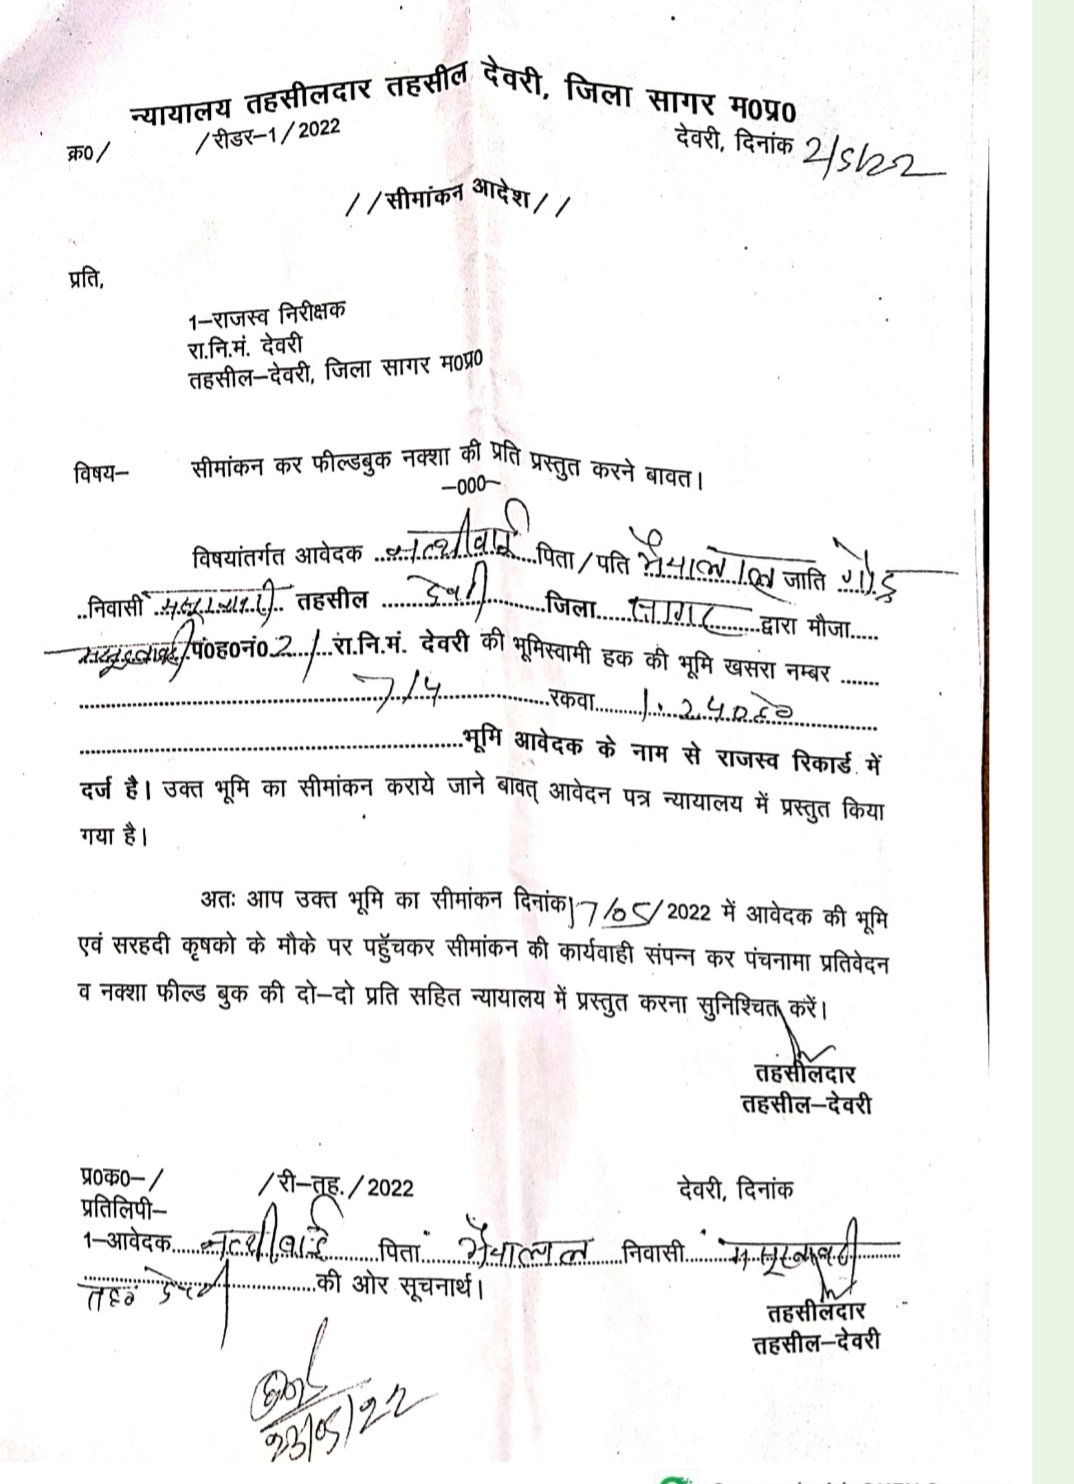 न्यायालय तहसीलदार तहसील देवरी, जिला सागर म0प्र0
क्र0/ /रीडर–1/2022 देवरी, दिनांक 2/5/22
//सीमांकन आदेश//
प्रति,
1–राजस्व निरीक्षक
रा.नि.मं. देवरी
तहसील–देवरी, जिला सागर म0प्र0
विषय– सीमांकन कर फील्डबुक नक्शा की प्रति प्रस्तुत करने बावत।
–000–
विषयांतर्गत आवेदक ........पिता/पति भैयालाल जाति गोंड
..निवासी ........ तहसील ........देवरी........जिला....सागर........द्वारा मौजा.....
पं0ह0नं0.21..रा.नि.मं. देवरी की भूमिस्वामी हक की भूमि खसरा नम्बर .......
........7/4........रकवा........1.240हे0........
........भूमि आवेदक के नाम से राजस्व रिकार्ड में
दर्ज है। उक्त भूमि का सीमांकन कराये जाने बावत् आवेदन पत्र न्यायालय में प्रस्तुत किया
गया है।
अतः आप उक्त भूमि का सीमांकन दिनांक 17/05/2022 में आवेदक की भूमि
एवं सरहदी कृषको के मौके पर पहुॅचकर सीमांकन की कार्यवाही संपन्न कर पंचनामा प्रतिवेदन
व नक्शा फील्ड बुक की दो–दो प्रति सहित न्यायालय में प्रस्तुत करना सुनिश्चित करें।
तहसीलदार
तहसील–देवरी
प्र0क0–/ /री–तह./2022 देवरी, दिनांक
प्रतिलिपी–
1–आवेदक........पिता भैयालाल निवासी........
तह0 देवरी........की ओर सूचनार्थ।
तहसीलदार
तहसील–देवरी
23/05/22